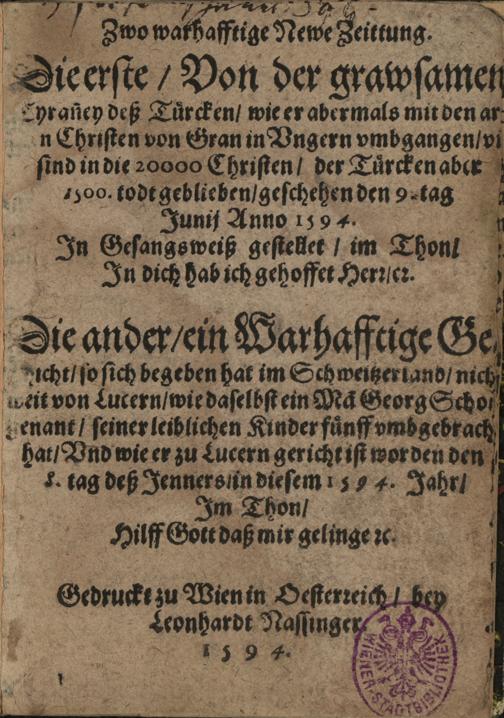 Zwo warhafftige Newe Zeittung.
Die erste / Von der grawsamen
Tyrañey deß Türcken / wie er abermals mit den ar-
n Christen von Gran in Vngern vmbgangen /
sind in die 20000 Christen / der Türcken aber
1500. todt geblieben / geschehen den 9. tag
Junij Anno 1594.
In Gesangsweiß gestellet / im Thon /
In dich hab ich gehoffet Herr / ec.
Die ander / ein Warhafftige Ge-
icht / so sich begeben hat im Schweitzerland / nich
weit von Lucern / wie daselbst ein Mã Georg Scho
genant / seiner leiblichen Kinder fünff vmbgebrach
hat / Vnd wie er zu Lucern gericht ist worden den
8. tag deß Jenners / in diesem 1594. Jahr /
Im Thon /
Hilff Gott daß mir gelinge ꝛc.
Gedruckt zu Wien in Oesterreich / bey
Leonhardt Nassinger
1594.
WIENER STADTBIBLIOTHEK